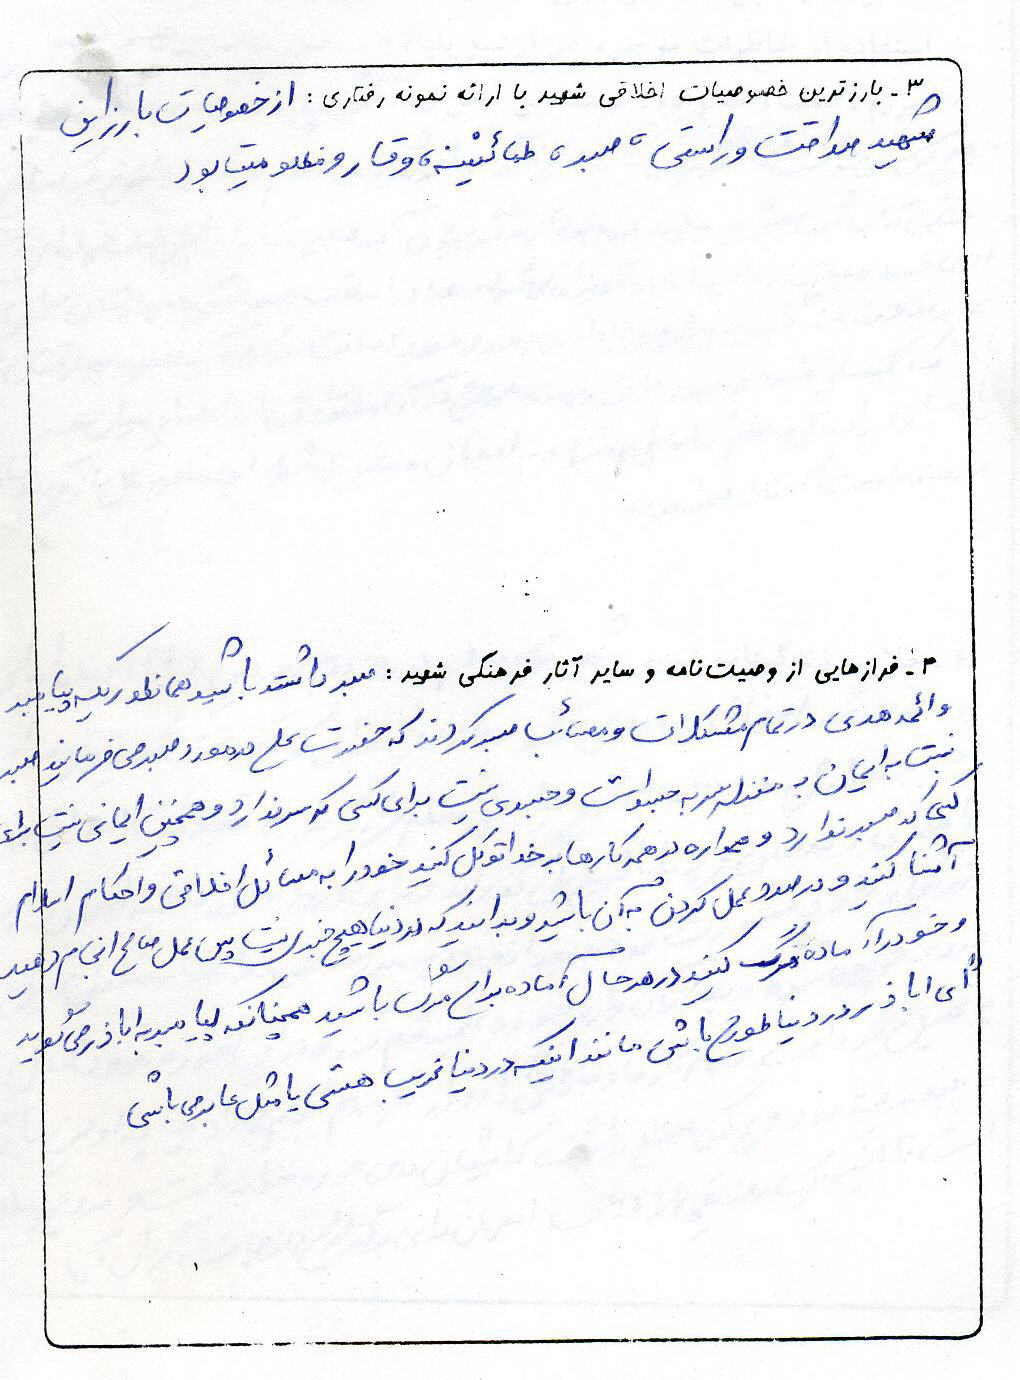 ۳- بارزترین خصوصیات اخلاقی شهید با ارائه نمونه رفتاری : از خصوصیات بارز این
شهید صداقت و راستی ، صبر ، طمائنینه ، وقار و مظلومیت بود
۴- فرازهایی از وصیت‌نامه و سایر آثار فرهنگی شهید : صبر داشته باشید همانطوریکه پیامبر
و ائمه هدی در تمام مشکلات و مصائب صبر کردند که حضرت علی در مورد صبر می فرمایند صبر
نسبت به ایمان به منزله سر به جسد است و جسدی نیست برای کسی که سر ندارد و همچنین ایمانی نیست برای
کسی که صبر ندارد و همواره در همه کارها بر خدا توکل کنید خود را به مسائل اخلاقی و احکام اسلام
آشنا کنید و درصدد عمل کردن به آن باشید و بدانید که در دنیا هیچ خبری نیست پس عمل صالح انجام دهید
و خود را آماده مرگ کنید در هر حال آماده برای مرگ باشید همچنانکه پیامبر به اباذر می گوید
ای اباذر در دنیا طوری باش مانند اینکه در دنیا غریب هستی یا مثل عابر می باشی